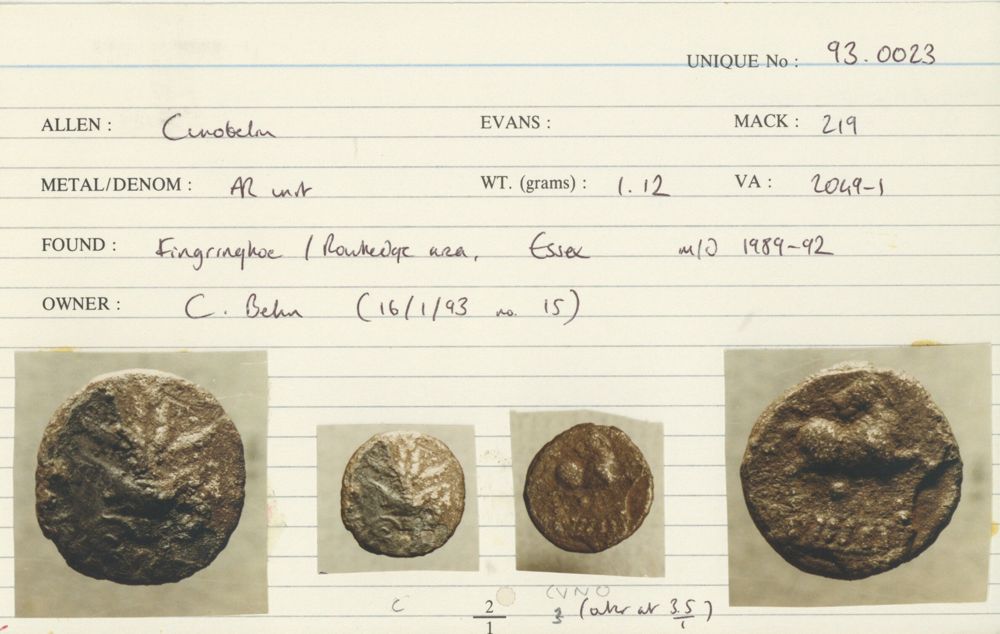 UNIQUE No : 93.0023
ALLEN : Cunobelin EVANS : MACK : 219
METAL/DENOM : AR unit WT. (grams) : 1.12 VA : 2049-1
FOUND : Fingringhoe / Rowhedge area, Essex m/d 1989-92
OWNER : C. Behn (16/1/93 no. 15)
C 2/1 CVNO (other at 3.5/1)